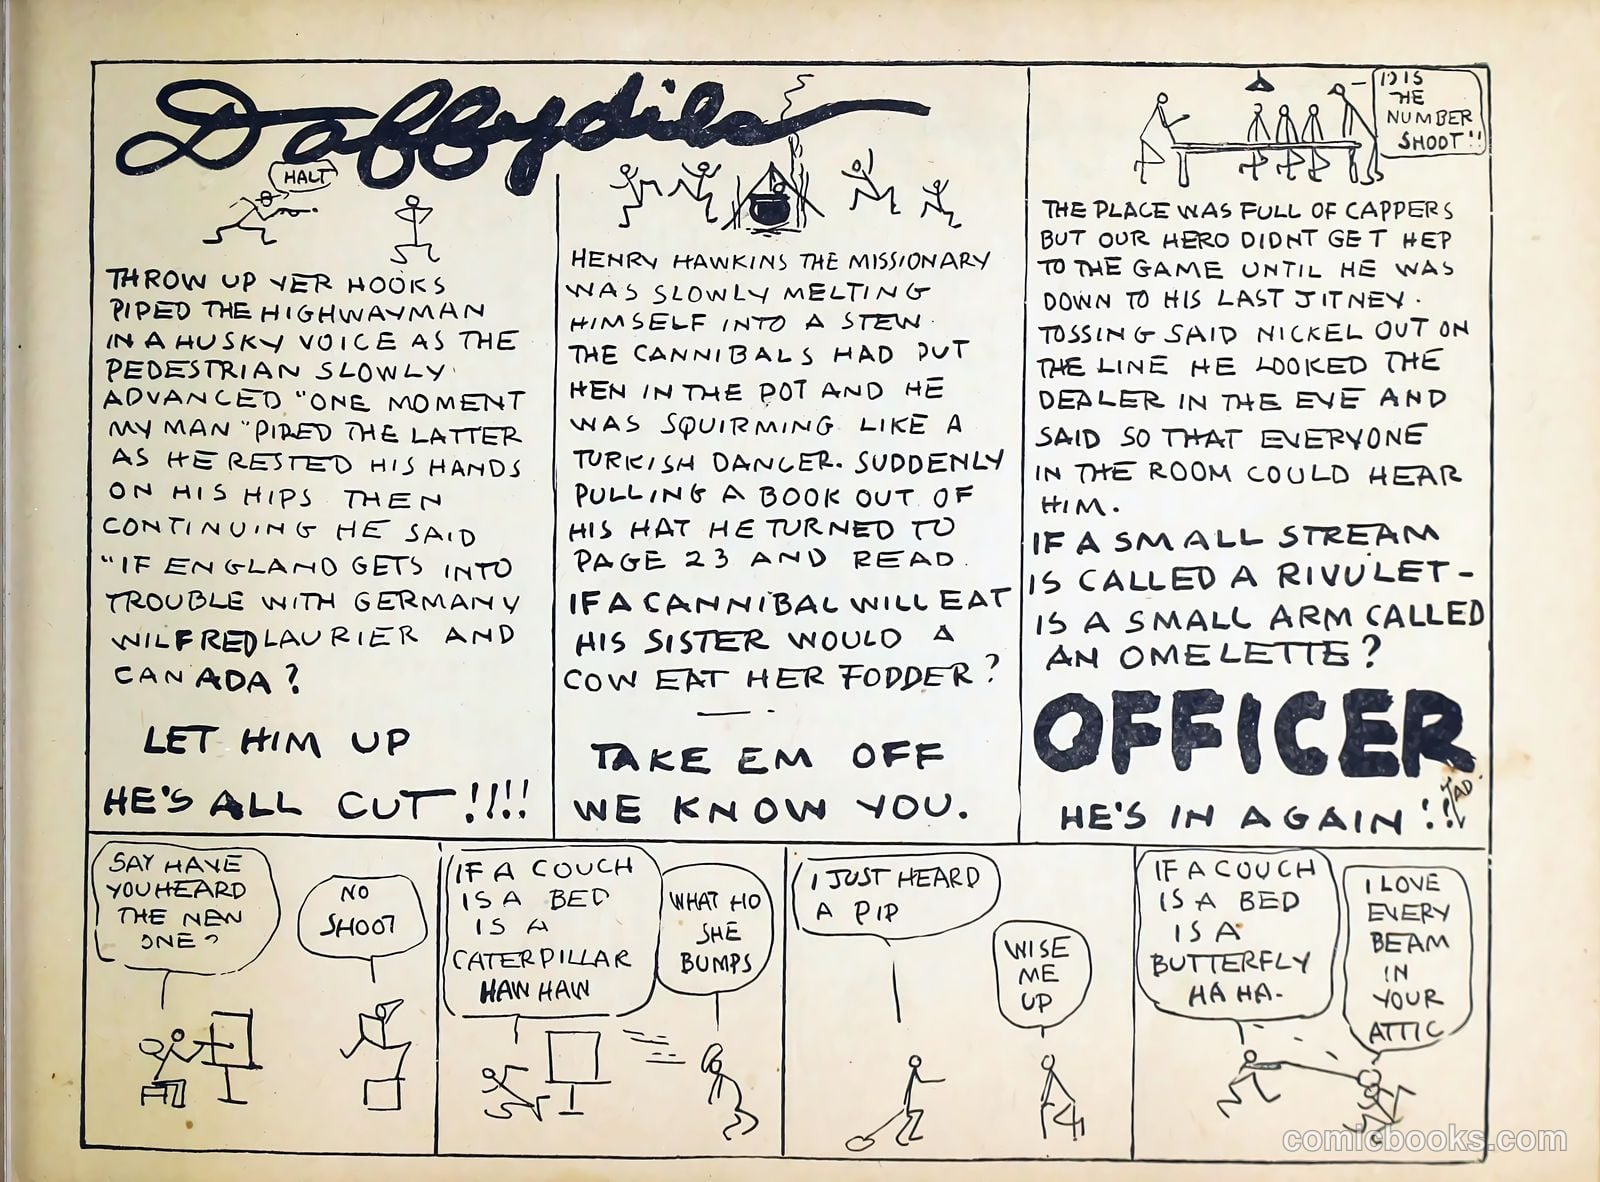 Daffydils
HALT
THROW UP YER HOOKS
PIPED THE HIGHWAYMAN
IN A HUSKY VOICE AS THE
PEDESTRIAN SLOWLY
ADVANCED "ONE MOMENT
MY MAN" PIPED THE LATTER
AS HE RESTED HIS HANDS
ON HIS HIPS THEN
CONTINUING HE SAID
"IF ENGLAND GETS INTO
TROUBLE WITH GERMANY
WILFRED LAURIER AND
CANADA?
LET HIM UP
HE'S ALL CUT!!!!
HENRY HAWKINS THE MISSIONARY
WAS SLOWLY MELTING
HIMSELF INTO A STEW.
THE CANNIBALS HAD PUT
HEN IN THE POT AND HE
WAS SQUIRMING LIKE A
TURKISH DANCER. SUDDENLY
PULLING A BOOK OUT OF
HIS HAT HE TURNED TO
PAGE 23 AND READ.
IF A CANNIBAL WILL EAT
HIS SISTER WOULD A
COW EAT HER FODDER?
TAKE EM OFF
WE KNOW YOU.
13 IS
THE
NUMBER
SHOOT!!
THE PLACE WAS FULL OF CAPPERS
BUT OUR HERO DIDNT GET HEP
TO THE GAME UNTIL HE WAS
DOWN TO HIS LAST JITNEY.
TOSSING SAID NICKEL OUT ON
THE LINE HE LOOKED THE
DEALER IN THE EYE AND
SAID SO THAT EVERYONE
IN THE ROOM COULD HEAR
HIM.
IF A SMALL STREAM
IS CALLED A RIVULET-
IS A SMALL ARM CALLED
AN OMELETTE?
OFFICER
HE'S IN AGAIN!!
TAD
SAY HAVE
YOU HEARD
THE NEW
ONE?
NO
SHOOT
IF A COUCH
IS A BED
IS A
CATERPILLAR
HAW HAW
WHAT HO
SHE
BUMPS
I JUST HEARD
A PIP
WISE
ME
UP
IF A COUCH
IS A BED
IS A
BUTTERFLY
HA HA.
I LOVE
EVERY
BEAM
IN
YOUR
ATTIC
comicbooks.com